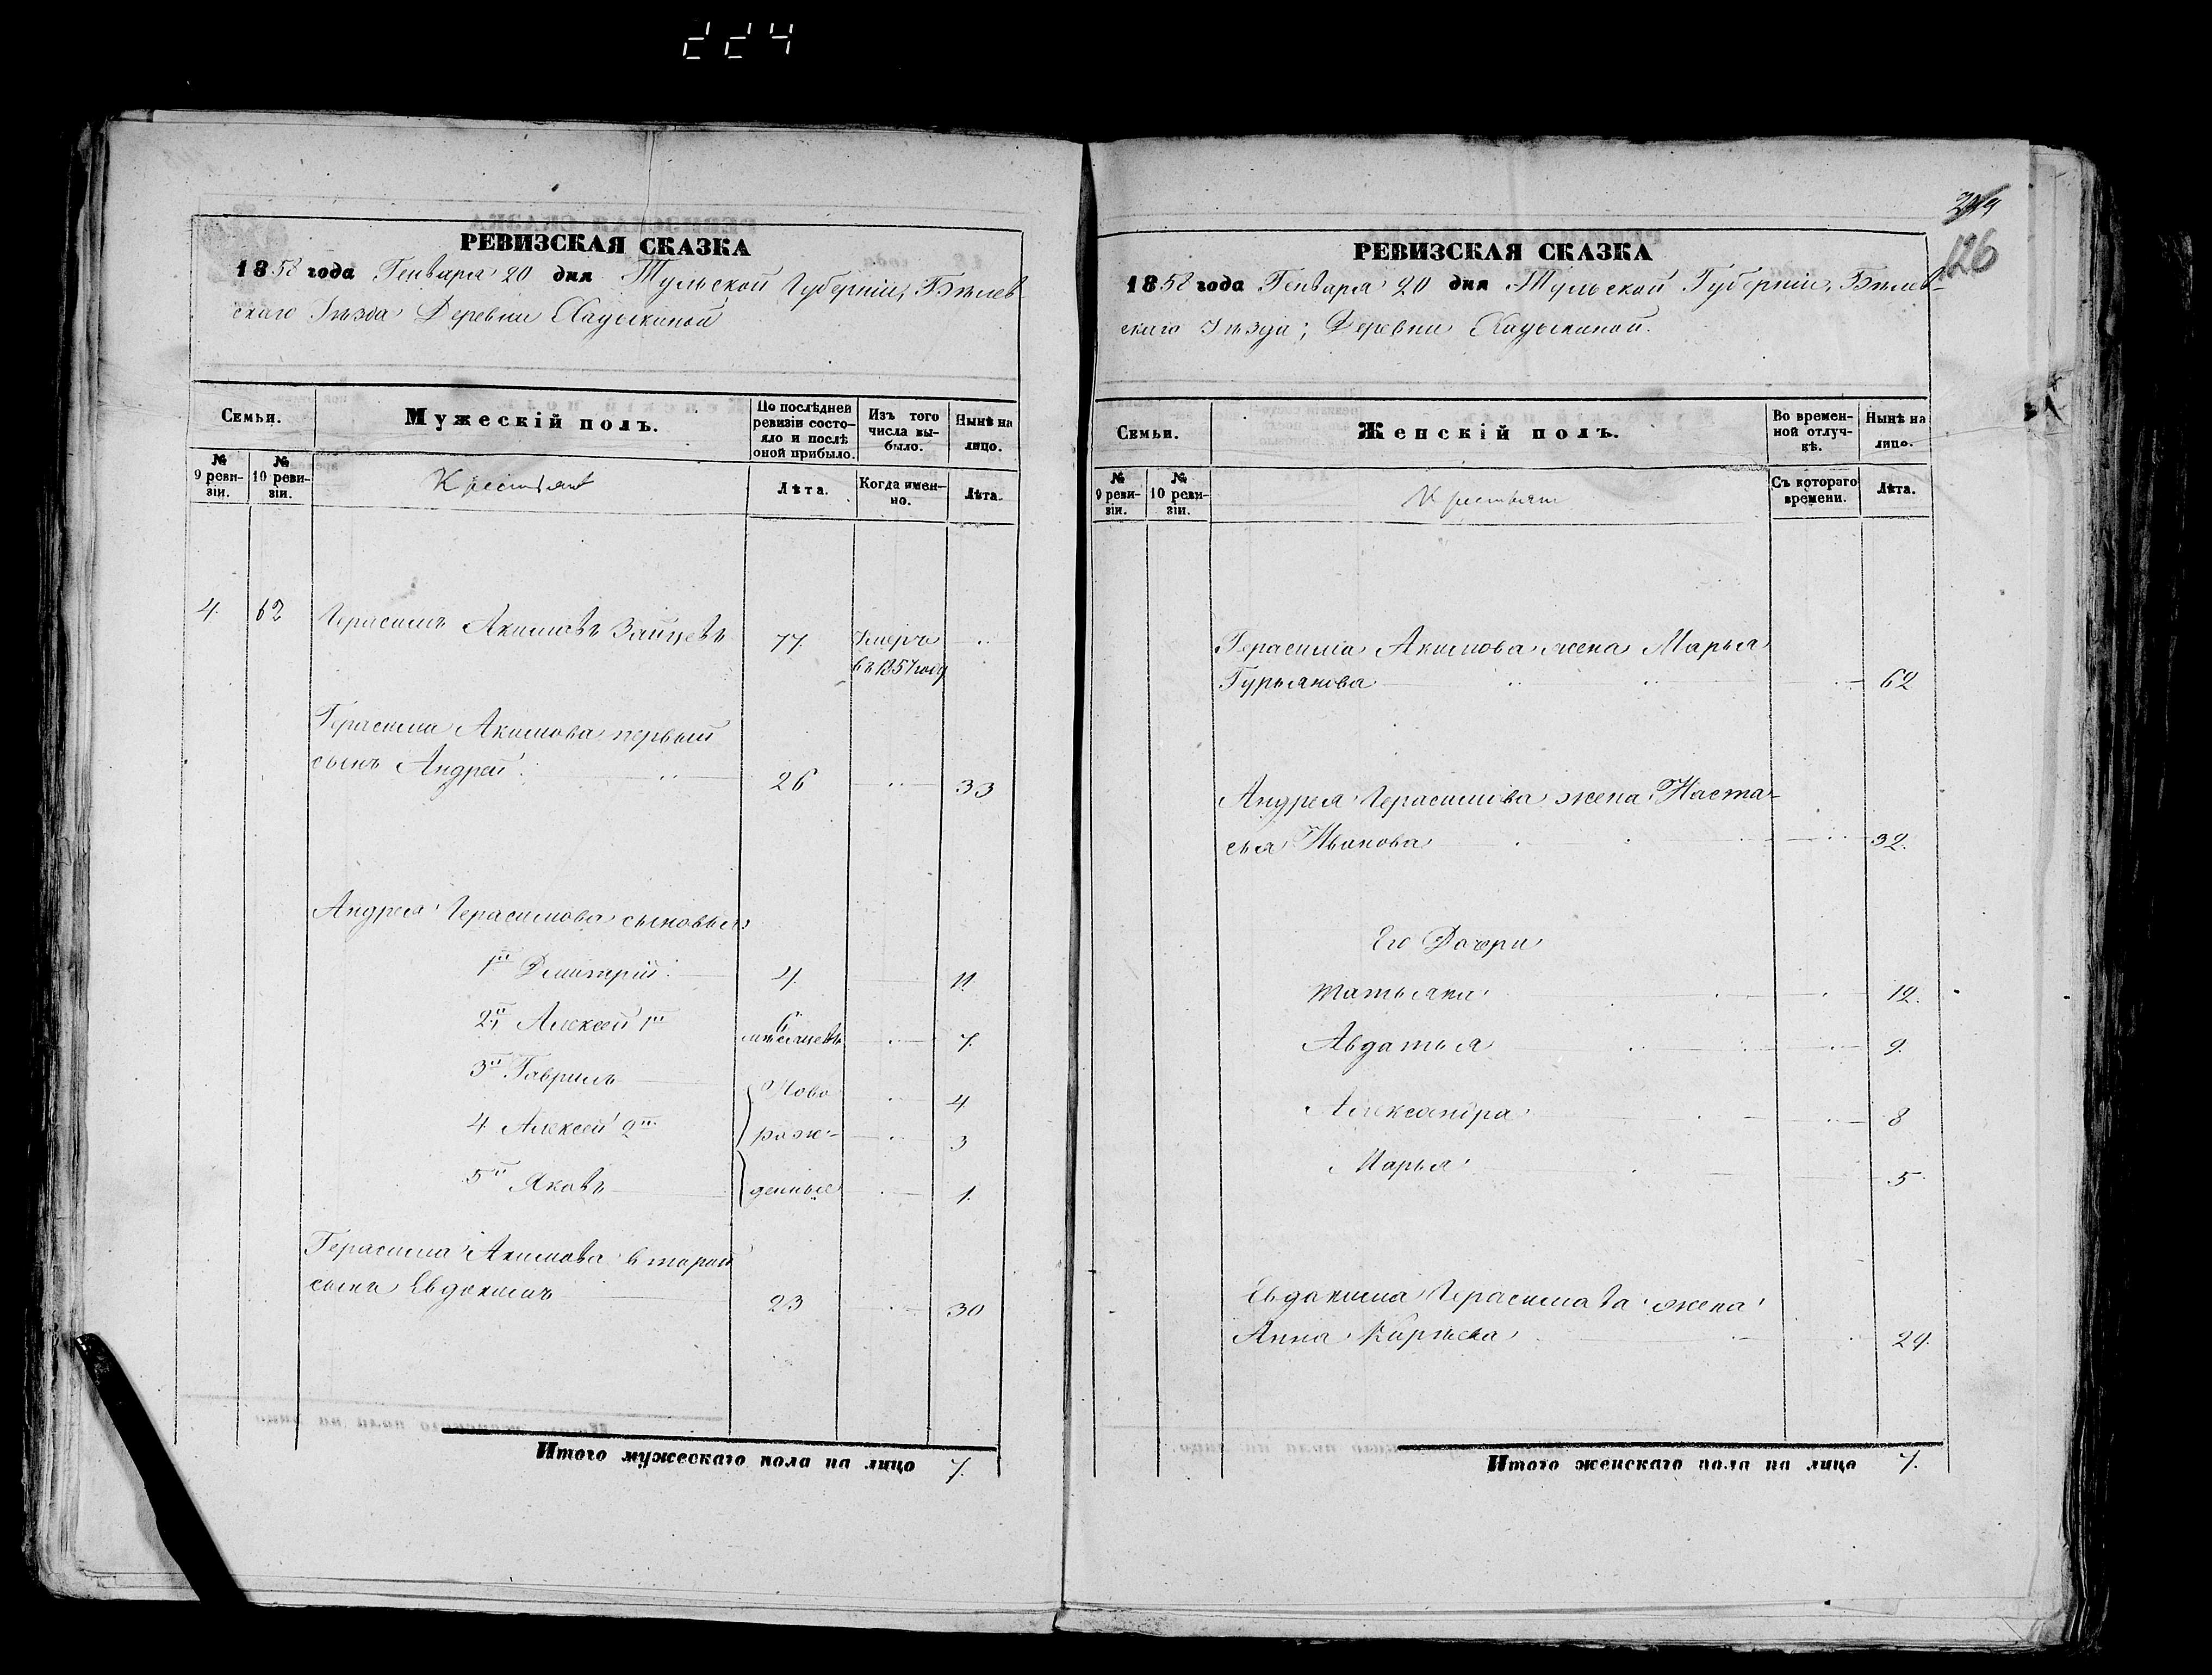 224
РЕВИЗСКАЯ СКАЗКА
1858 года Генваря 20 дня Тульской Губерніи, Бѣлев-
скаго Уѣзда Деревни
Семьи.
Мужескій полъ.
По послѣдней ревизіи состо-
яло и послѣ оной прибыло.
Изъ того числа вы-
было.
Нынѣ на лицо.
№ 9 реви-
зіи.
№ 10 реви-
зіи.
Крестьянъ
Лѣта.
Когда имен-
но.
Лѣта.
4. 62 Герасимъ Акимовъ Зайцевъ 77. Умеръ
въ 1857 году
Герасима Акимова первый
сынъ Андрей 26 33
Андрея Герасимова сыновья
1й Дмитрій 4. 11.
2й Алексей 1й 6 месяцевъ 7.
3й Гаврилъ Ново 4
4 Алексей 2й рож- 3
5й Яковъ денные 1.
Герасима Акимова второй
сынъ Евдокимъ 23 30
Итого мужескаго пола на лицо 7.
126
РЕВИЗСКАЯ СКАЗКА
1858 года Генваря 20 дня Тульской Губерніи, Бѣлев-
скаго Уѣзда; Деревни
Семьи.
Женскій полъ.
Во времен-
ной отлуч-
кѣ.
Нынѣ на лицо.
№ 9 реви-
зіи.
№ 10 реви-
зіи.
Крестьян
Съ котораго времени.
Лѣта.
Герасима Акимова жена Марья
Гурьянова 62
Андрея Герасимова жена Наста-
сья Иванова 32.
Его Дочери
Татьяна 12.
Авдатья 9.
Александра 8
Марья 5
Евдокима Герасимова жена
Анна 29.
Итого женскаго пола на лицо 7.